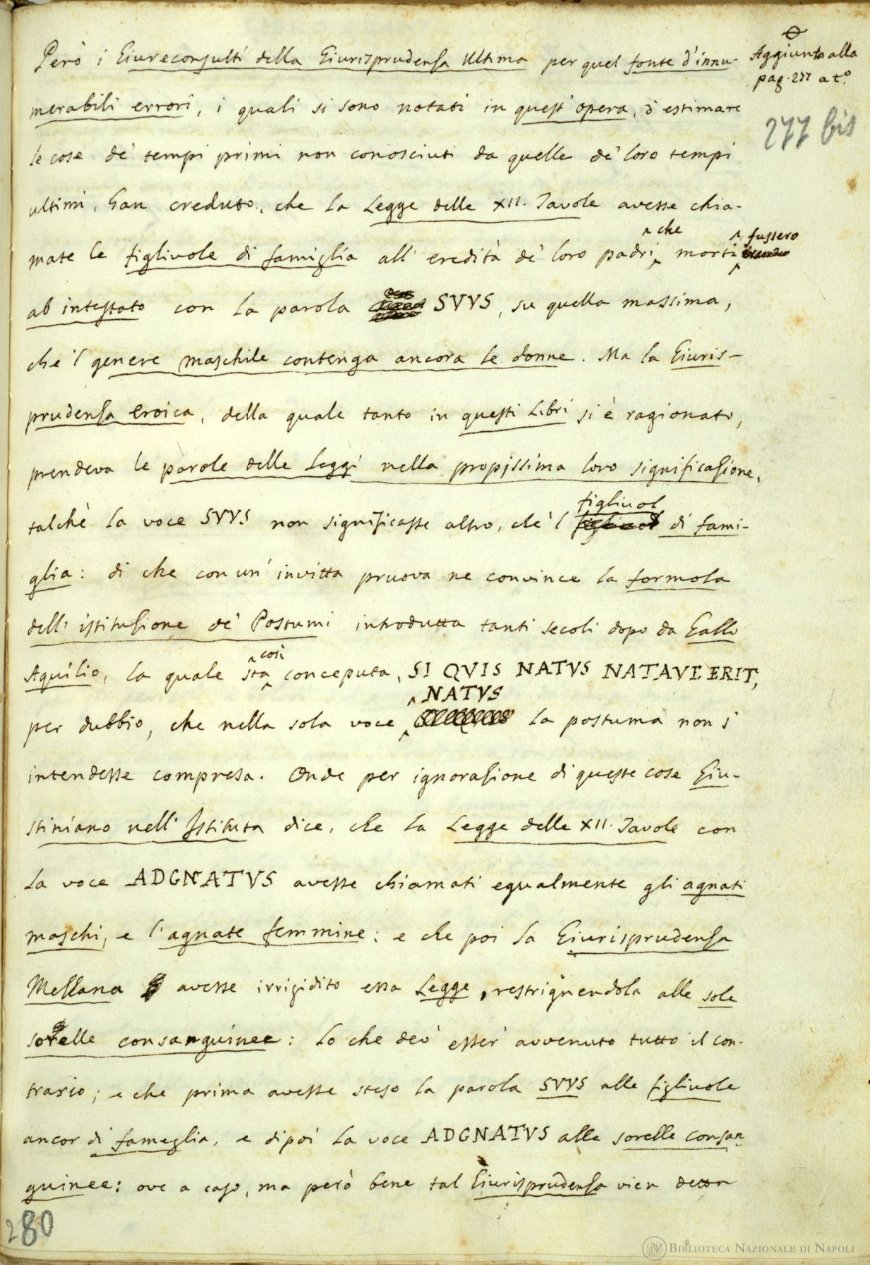 Però i Giureconsulti della Giurisprudenza Ultima per quel fonte d'innu-
merabili errori, i quali si sono notati in quest'opera, d'estimare
le cose de' tempi primi non conosciuti da quelle de' loro tempi
ultimi, han creduto, che la Legge delle XII. Tavole avesse chia-
mate le figliuole di famiglia all'eredità de' loro padri che morti fussero
ab intestato con la parola SVVS, su quella massima,
che 'l genere maschile contenga ancora le donne. Ma la Giuris-
prudenza eroica, della quale tanto in questi Libri si è ragionato,
prendeva le parole delle Leggi nella propissima loro significazione,
talchè la voce SVVS non significasse altro, che 'l figliuol di fami-
glia: di che con un' invitta pruova ne convince la formola
dell' istituzione de' Postumi introdutta tanti secoli dopo da Gallo
Aquilio, la quale sta così conceputa, SI QVIS NATVS NATAVE ERIT,
per dubbio, che nella sola voce NATVS la postuma non s'
intendesse compresa. Onde per ignorazione di queste cose Giu-
stiniano nell' Istituta dice, che la Legge delle XII. Tavole con
la voce ADGNATVS avesse chiamati egualmente gli agnati
maschi, e l'agnate femmine: e che poi la Giurisprudenza
Mezzana avesse irrigidito essa Legge, restrignendola alle sole
sorelle consanguinee: lo che dev' esser' avvenuto tutto il con-
trario; e che prima avesse steso la parola SVVS alle figliuole
ancor di fameglia, e dipoi la voce ADGNATVS alle sorelle consan
guinee: ove a caso, ma però bene tal Giurisprudenza vien detta
Aggiunta alla
pag. 277 a t.º
277 bis
280
BIBLIOTECA NAZIONALE DI NAPOLI